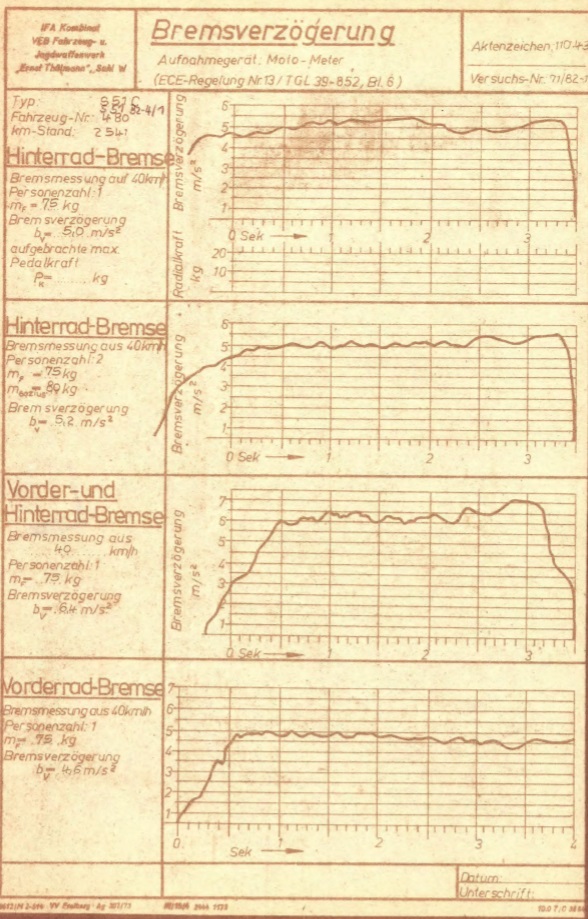 IFA Kombinat
VEB Fahrzeug- u.
Jagdwaffenwerk
"Ernst Thälmann", Suhl W
Bremsverzögerung
Aufnahmegerät: Moto-Meter
(ECE-Regelung Nr.13 / TGL 39-852, Bl. 6)
Aktenzeichen: 110-43
Versuchs-Nr. 71/82-
Typ:
S 51 B2-4/1
Fahrzeug-Nr.: 480
km-Stand: 2541
Hinterrad-Bremse
Bremsmessung auf 40km/h
Personenzahl: 1
= 75 kg
Bremsverzögerung
bv= 5,0 m/s²
aufgebrachte max.
Pedalkraft
kg
Bremsverzögerung
m/s²
6
5
4
3
2
1
0 Sek
2
3
Radialkraft
kg
20
10
Hinterrad-Bremse
Bremsmessung aus 40km/h
Personenzahl: 2
= 75 kg
= 80 kg
Bremsverzögerung
bv= 5,2 m/s²
Bremsverzögerung
m/s²
6
5
4
3
2
1
0 Sek
1
2
3
Vorder- und
Hinterrad-Bremse
Bremsmessung aus
40 km/h
Personenzahl: 1
= 75 kg
Bremsverzögerung
bv= 6,4 m/s²
Bremsverzögerung
m/s²
7
6
5
4
3
2
1
0 Sek
1
2
3
Vorderrad-Bremse
Bremsmessung aus 40km/h
Personenzahl: 1
= 75 kg
Bremsverzögerung
bv= 4,6 m/s²
7
6
5
4
3
2
1
0
1
2
3
Sek
Datum:
Unterschrift: